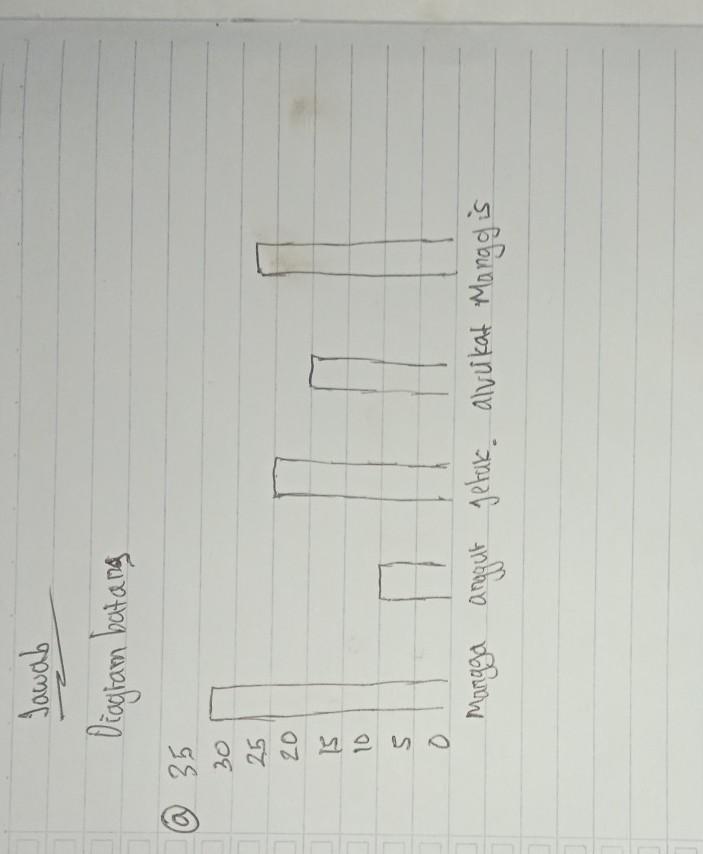 Jawab
Diagram batang
(a) 35
30
25
20
15
10
5
0
Mangga anggur jeruk. alvukat Manggis